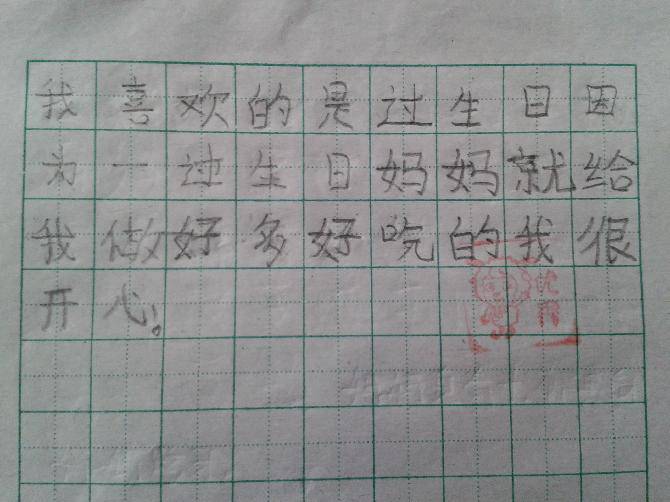 我喜欢的是过生日因
为一过生日妈妈就给
我做好多好吃的我很
开心!